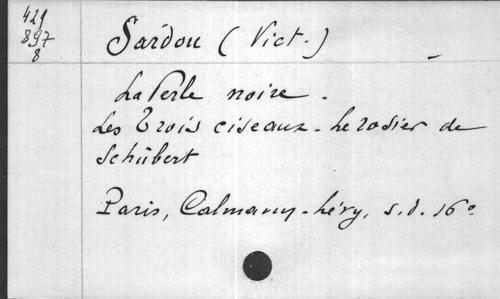 421
897
8
Sardou (Vict.)
La Perle noire.
Les Trois ciseaux - Le rosier de
Schubert
Paris, Calmann-Lévy, s.d. 16°